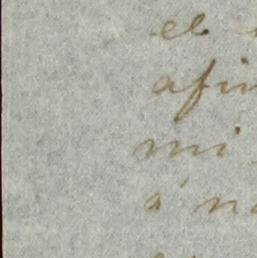 el
afin
mi
á na